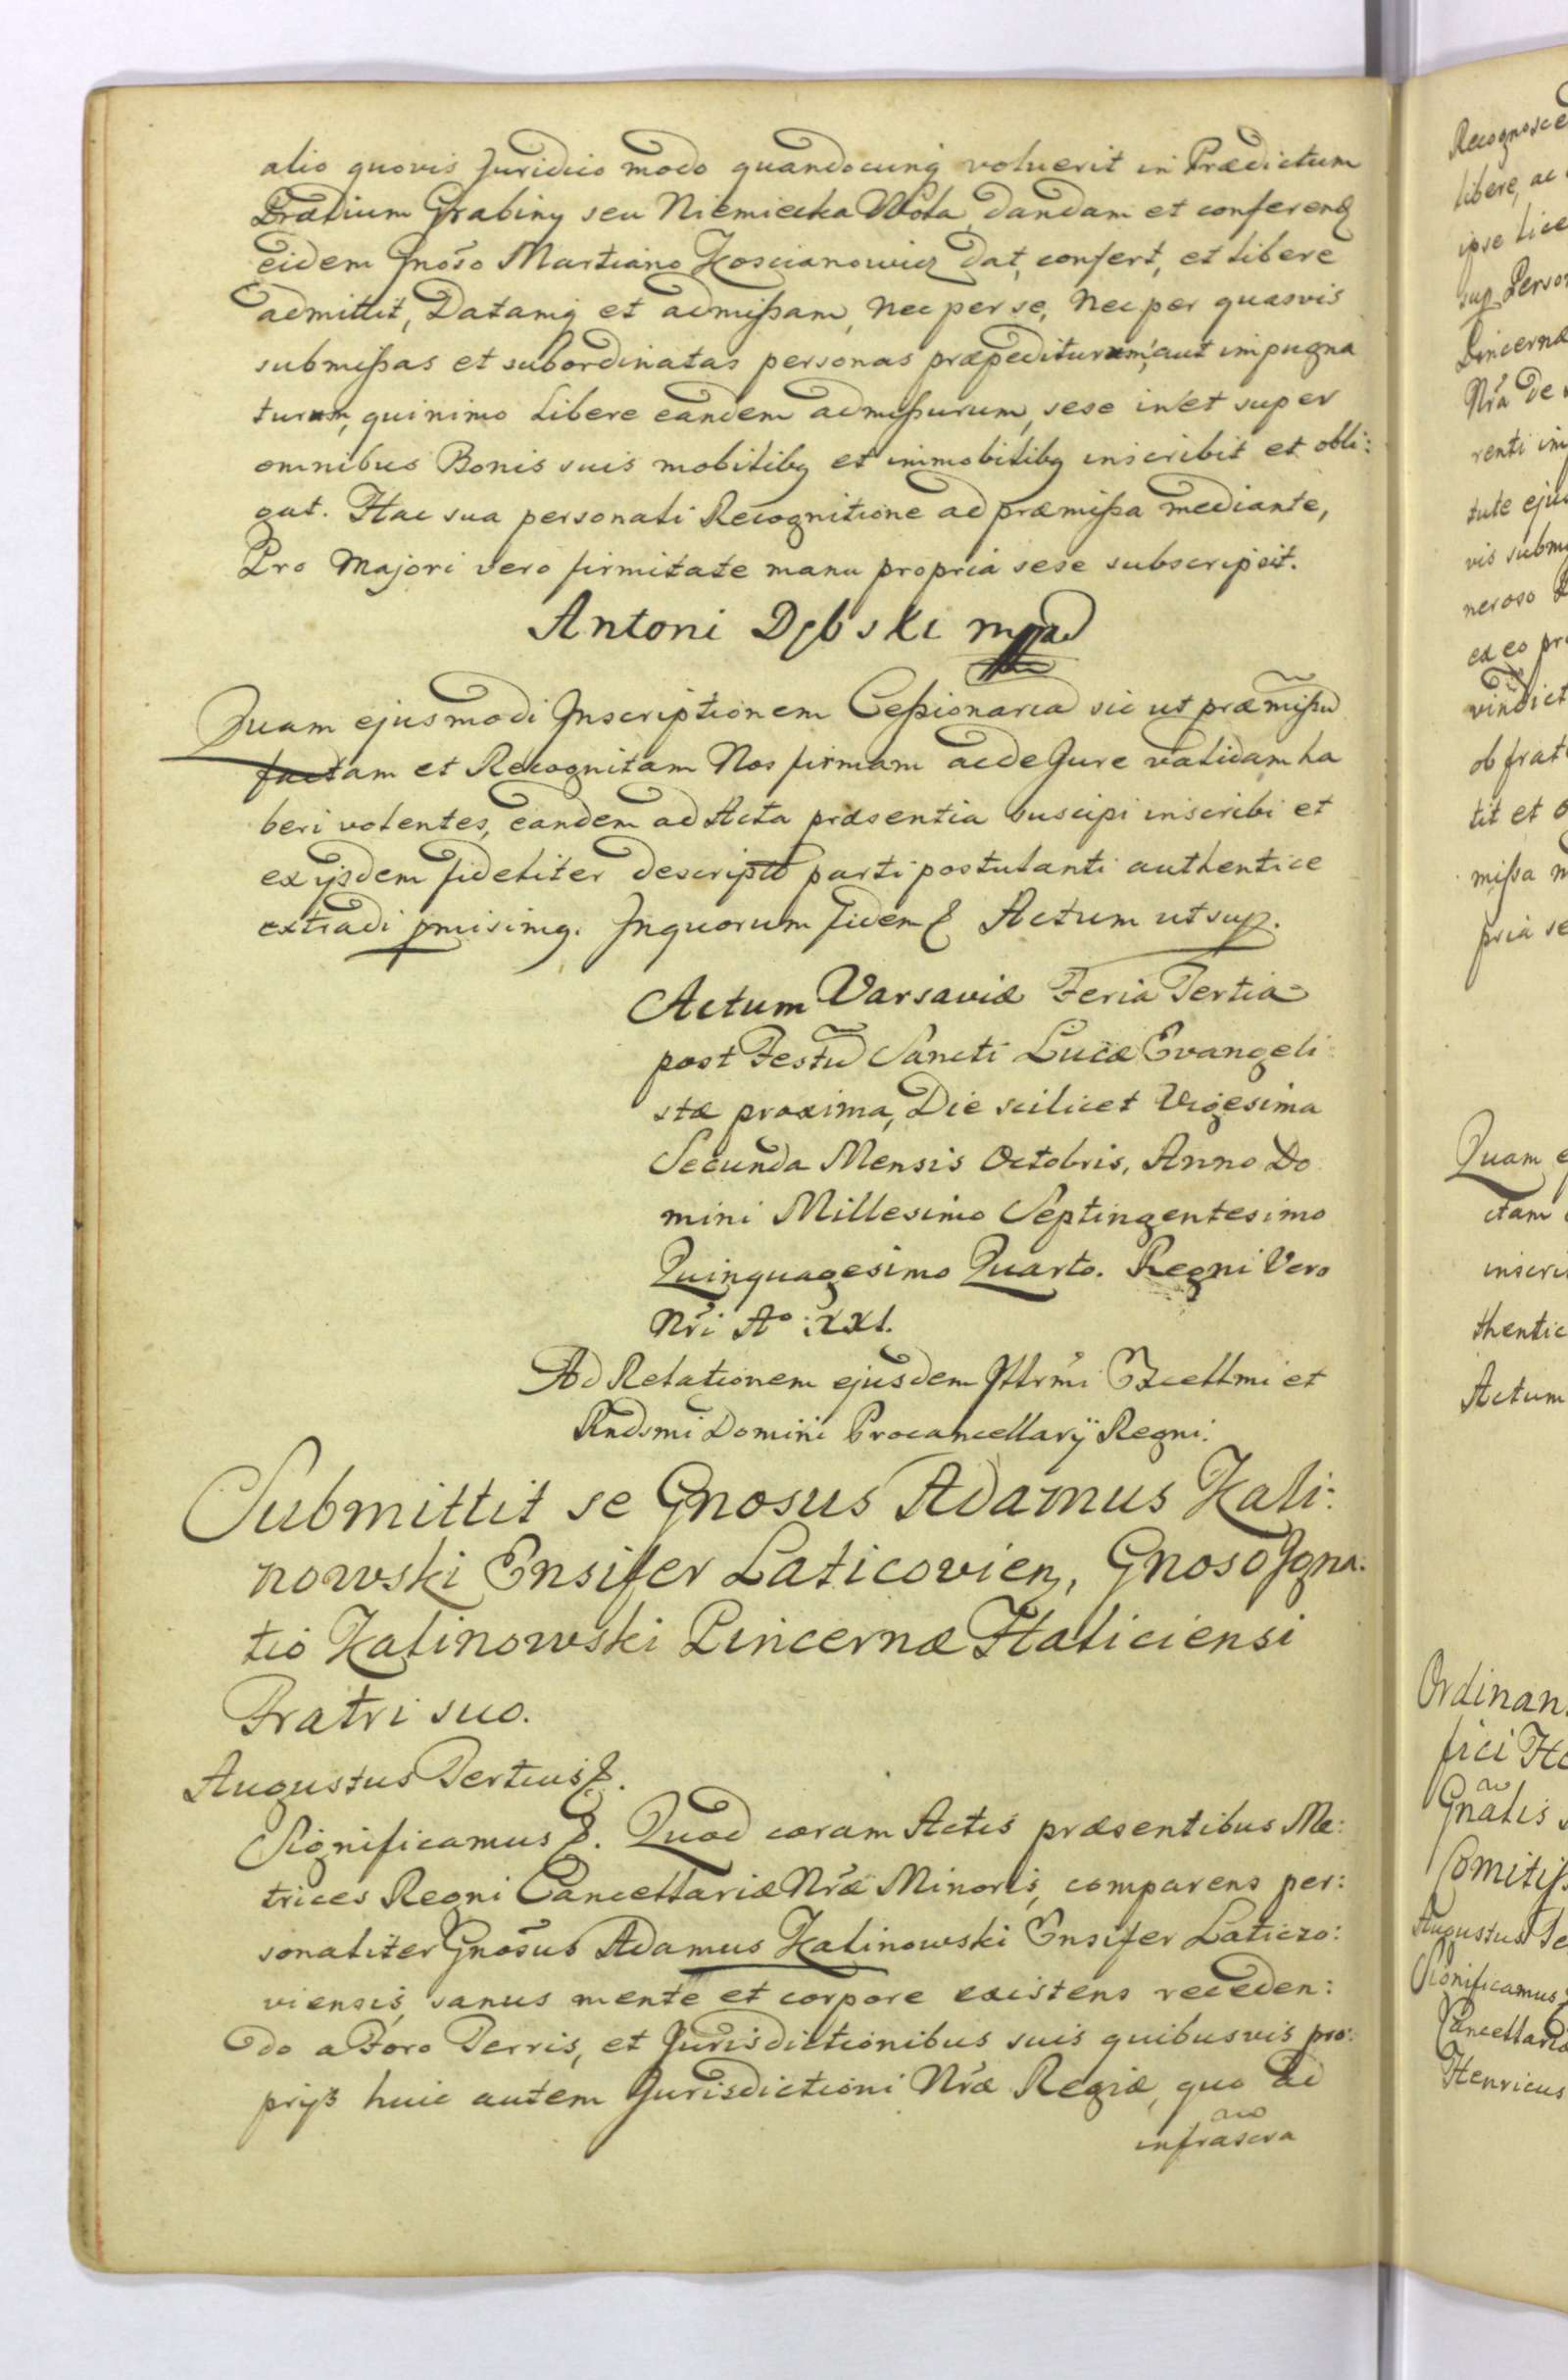 alio quovis Juridico modo quandocunq voluerit in Prædictum
Prædium Grabiny seu Niemiecka Wola, dandam et conferend
eidem Gnõso Martiano Koscianowicz dat, confert, et libere
admittit, Datamq et admißam, nec per se, nec per quasvis
submißas et subordinatas personas præpediturum, aut impugna
turum, quinimo Libere eandem admißurum, sese in et super
omnibus Bonis suis mobilibq et immobilibq inscribit et obli:
gat. Hac sua personali Recognitione ad præmißa mediante,
Pro Majori vero firmitate manu propria sese subscripsit.
Antoni Dębski mpp
Quam ejusmodi Inscriptionem Ceßionaria sic ut præmißu
factam et Recognitam Nos firmam ac de Jure validam ha
beri volentes, eandem ad Acta præsentia suscipi inscribi et
ex ijsdem fideliter descripto parti postulanti authentice
extradi pmisimq. In quorum fidem & Actum ut sup.
Actum Varsaviæ Feria Tertia
post Festũ Sancti Lucæ Evangeli
stæ proxima, Die scilicet Vigesima
Secunda Mensis Octobris, Anno Do
mini Millesimo Septingentesimo
Quinquagesimo Quarto. Regni Vero
Nri Aº XXI.
Ad Relationem ejusdem Illrmi Excellmi et
Rndsmi Domini Procancellarij Regni.
Submittit se Gnosus Adamus Kali:
nowski Ensifer Laticovien, Gnoso Igna:
tio Kalinowski Pincernæ Haliciensi
Fratri suo.
Augustus Tertius &.
Significamus &. Quod coram Actis præsentibus Me:
trices Regni Cancellariæ Nræ Minoris, comparens per:
sonaliter Gnõsus Adamus Kalinowski Ensifer Laticzo:
viensis, sanus mente et corpore existens receden:
do a Foro Terris, et Jurisdictionibus suis quibusvis pro:
prijs huic autem Jurisdictioni Nræ Regiæ, quo ad
infrascra
Recognosce
libere, ac
ipse lice
sup Person
Pincernæ
Nra de
renti im
tute ejus
vis subm
neroso
ex eo pr
vindict
ob frat
tit et o
mißa m
pria se
Quam e
ctam
inscri
thentic
Actum
Ordinan
fici
Gnalis
Comitiß
Augustus Te
Significamus
Cancellariæ
Henricus